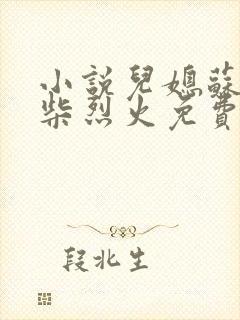 小說兒媳蘇
柴烈火免費
段北生